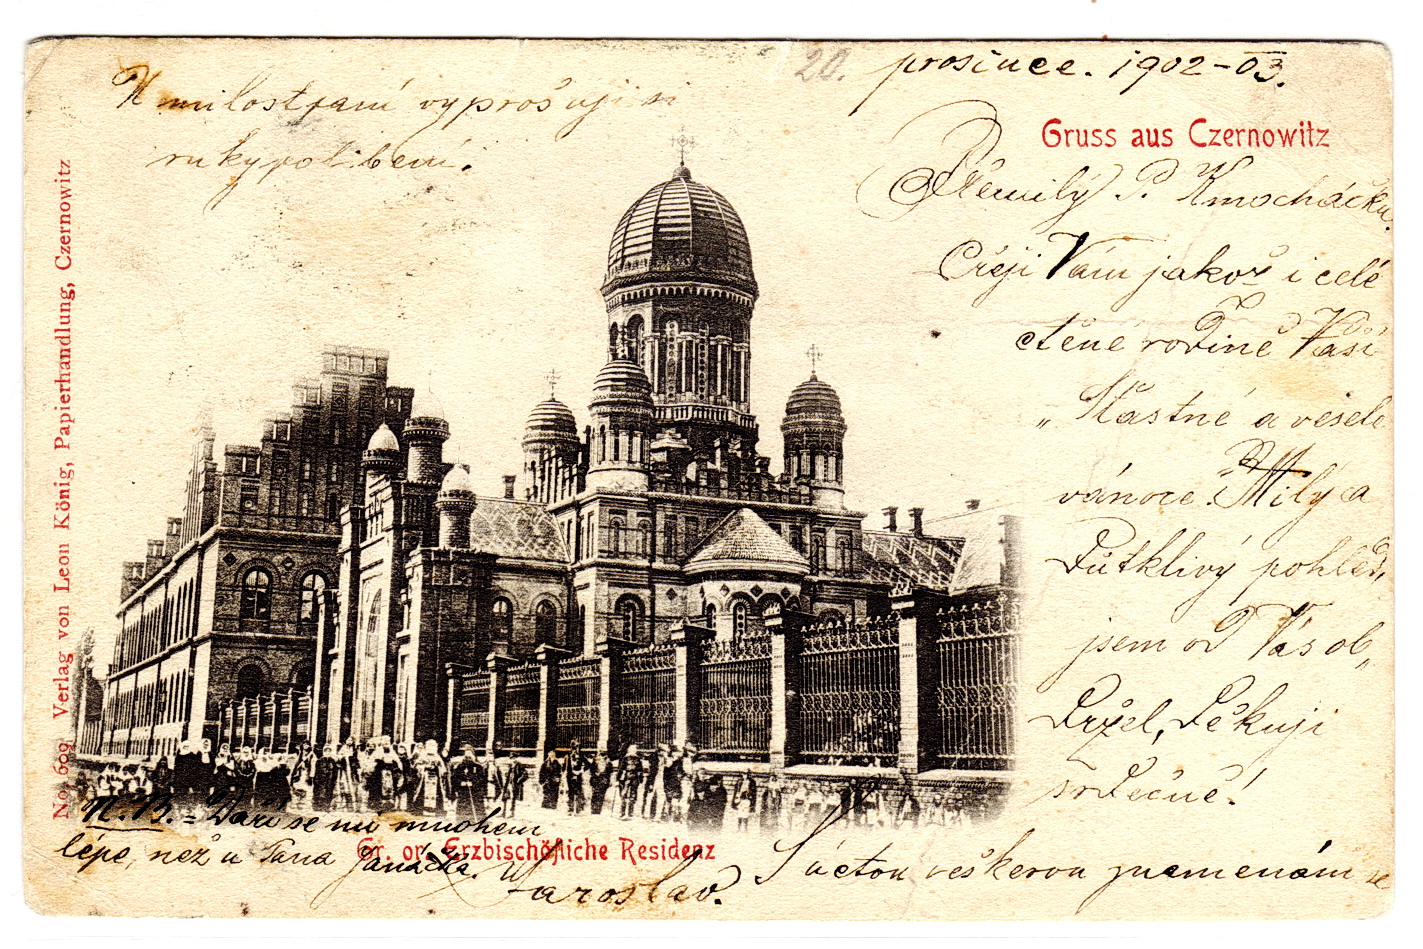 20. prosince. 1902-03.
Gruss aus Czernowitz
Přemilý P. Kmocháčku.
Přeji Vám jakož i celé
ctěné rodině Vaší
„Šťastné a veselé
vánoce." Milý a
Důtklivý pohled,
jsem od Vás ob„
Držel, Děkuji
srdečně!
S úctou veškerou znamenám se
Jaroslav.
K milostpaní vyprošuji si
rukypolibení.
N.B. = Daří se mi mnohem
lépe, než u Pana Janáčka.
Gr. or. Erzbischöfliche Residenz
No. 609 Verlag von Leon König, Papierhandlung, Czernowitz